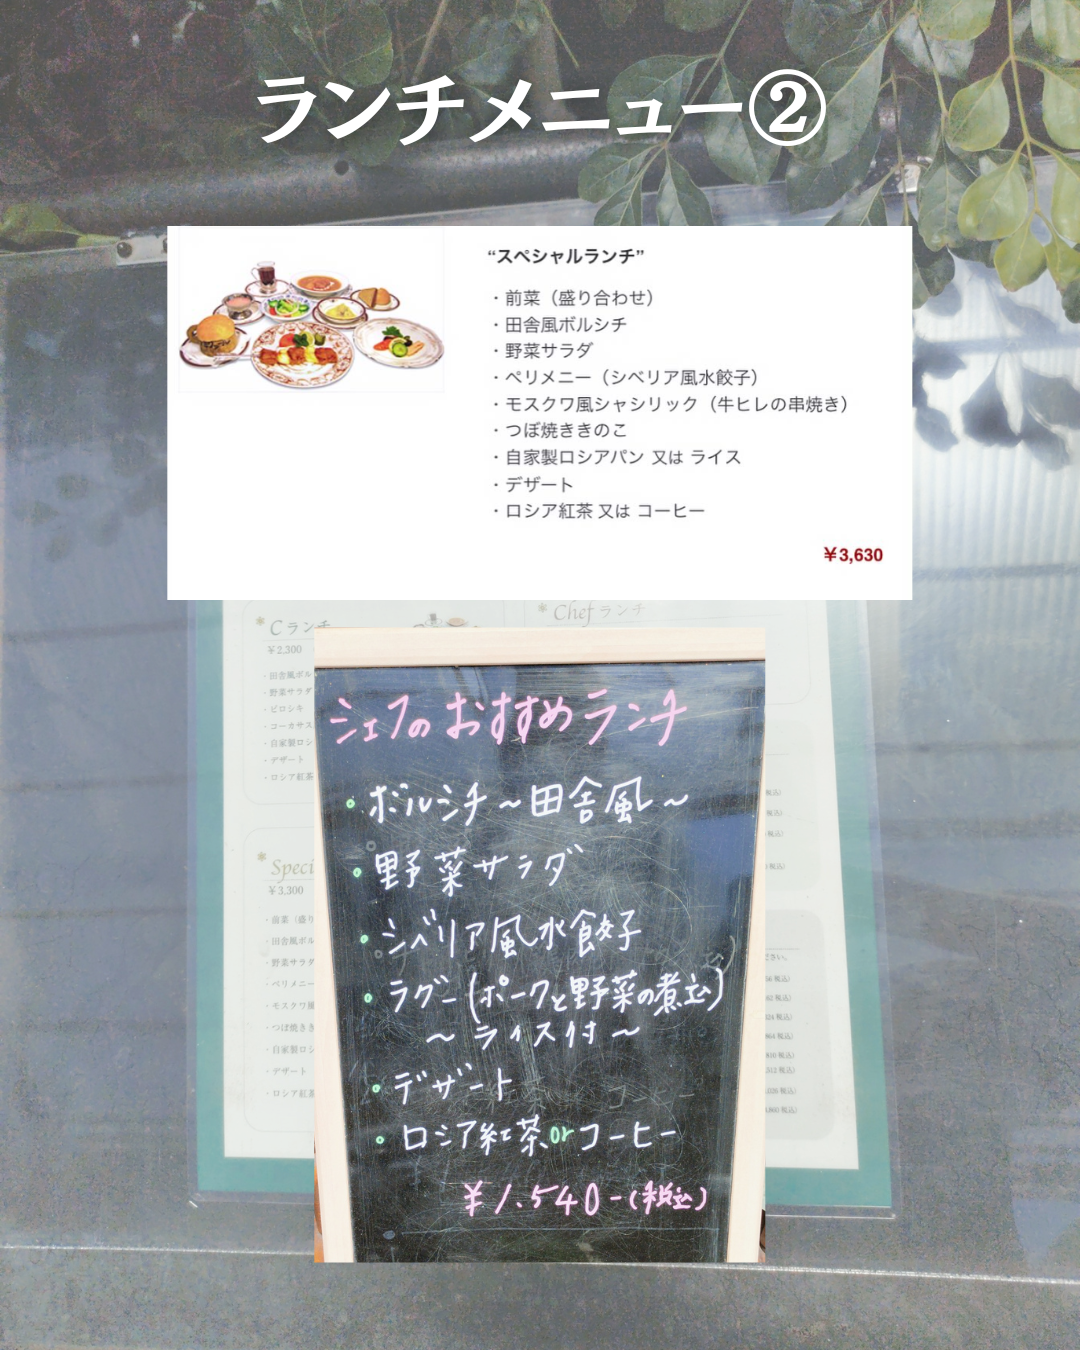 ランチメニュー②
“スペシャルランチ”
・前菜（盛り合わせ）
・田舎風ボルシチ
・野菜サラダ
・ペリメニー（シベリア風水餃子）
・モスクワ風シャシリック（牛ヒレの串焼き）
・つぼ焼ききのこ
・自家製ロシアパン 又は ライス
・デザート
・ロシア紅茶 又は コーヒー
￥3,630
* Cランチ
￥2,300
・田舎風ボル
・野菜サラダ
・ピロシキ
・コーカサス
・自家製ロシ
・デザート
・ロシア紅茶
* Chefランチ
* Speci
￥3,300
・前菜（盛り
・田舎風ボル
・野菜サラダ
・ペリメニー
・モスクワ風
・つぼ焼きき
・自家製ロシ
・デザート
・ロシア紅茶
シェフのおすすめランチ
・ボルシチ～田舎風～
・野菜サラダ
・シベリア風水餃子
・ラグー(ポークと野菜の煮込)
～ライス付～
・デザート
・ロシア紅茶orコーヒー
￥1.540-(税込)